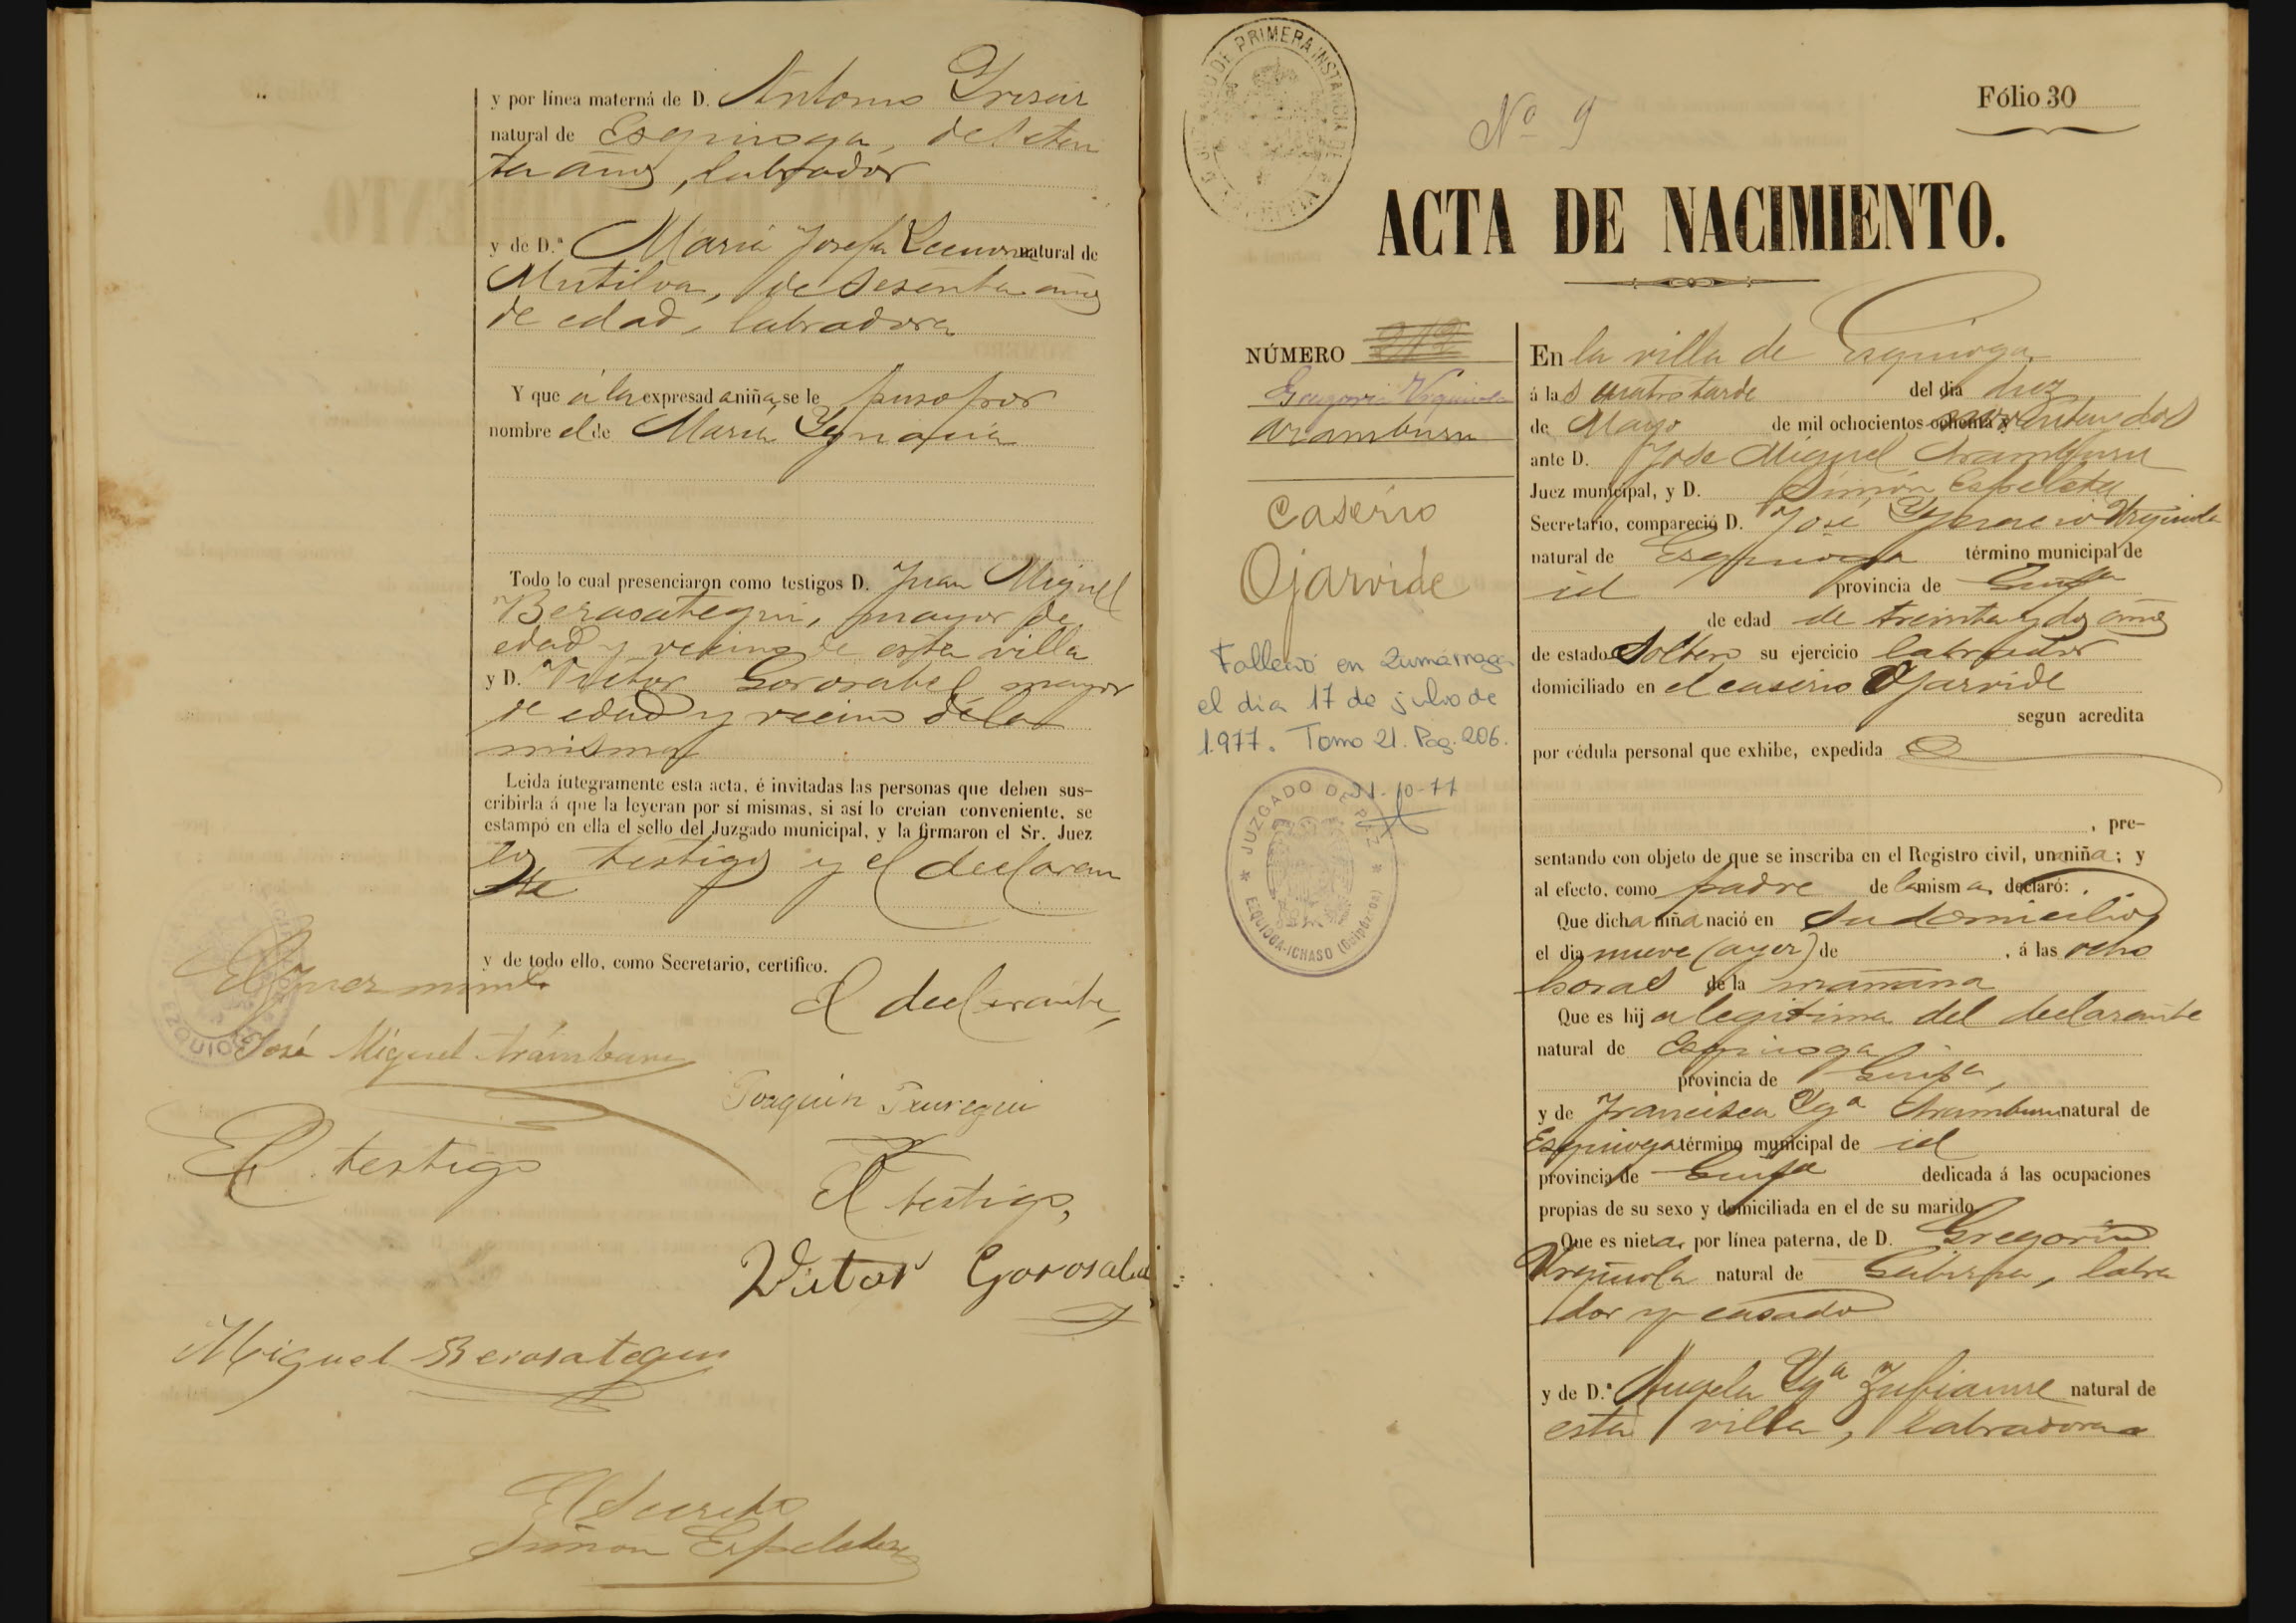 y por línea materná de D. Antonio Yrisar
natural de Esquioga, de seten
ta años, labrador
y de D.ª Maria Josefa Lecuona natural de
Mutiloa, de sesenta años
de edad, labradora
Y que á la expresad a niña, se le puso por
nombre el de Maria Ygnacia
Todo lo cual presenciaron como testigos D. Juan Miguel
Berasategui, mayor de
edad y vecino de esta villa
y D. Victor Gorosabel mayor
de edad y vecino de la
misma
Leida íutegramente esta acta, é invitadas las personas que deben sus-
cribirla á que la leyeran por sí mismas, si así lo creian conveniente, se
estampó en ella el sello del Juzgado municipal, y la firmaron el Sr. Juez
los testigos y el declaran
te
y de todo ello, como Secretario, certifico.
El Juez munl.
El declarante,
José Miguel Arámburu
Joaquin Jauregui
El testigo
El testigo,
Victor Gorosabel
Miguel Berasategui
El Secreto
Simon Espeleta
JUZGADO DE PRIMERA INSTANCIA DE
Nº 9
Fólio 30
ACTA DE NACIMIENTO.
NÚMERO 212
Gregoria Urquiola
Aramburu
Caserio
Ojarvide
Falleció en Zumárraga
el día 17 de julio de
1.977. Tomo 21. Pag. 206.
21-10-77
JUZGADO DE PAZ
EZQUIOGA-ICHASO (Guipúzcoa)
En la villa de Esquioga
á las cuatro tarde del dia diez
de Mayo de mil ochocientos ochenta y noventa y dos
ante D. Jose Miguel Aramburu
Juez municipal, y D. Simón Espeleta
Secretario, compareció D. José Ygnacio Urquiola
natural de Esquioga término municipal de
id provincia de Guipa
de edad de treinta y dos años
de estado Soltero su ejercicio labrador
domiciliado en el caserio Ojarvide
segun acredita
por cédula personal que exhibe, expedida
, pre-
sentando con objeto de que se inscriba en el Registro civil, una niña; y
al efecto, como padre de la mism a, declaró:
Que dicha niña nació en su domicilio
el dia nueve (ayer) de , á las ocho
horas de la mañana
Que es hij a legitima del declarante
natural de Esquioga
provincia de Guipa,
y de Francisca Ygª Aramburu natural de
Esquioga término municipal de id
provincia de Guipa dedicada á las ocupaciones
propias de su sexo y domiciliada en el de su marido.
Que es nieta, por línea paterna, de D. Gregorio
Urquiola natural de Gabiria, labra
dor y casado
y de D.ª Angela Ygª Zubiaurre natural de
esta villa, labradora